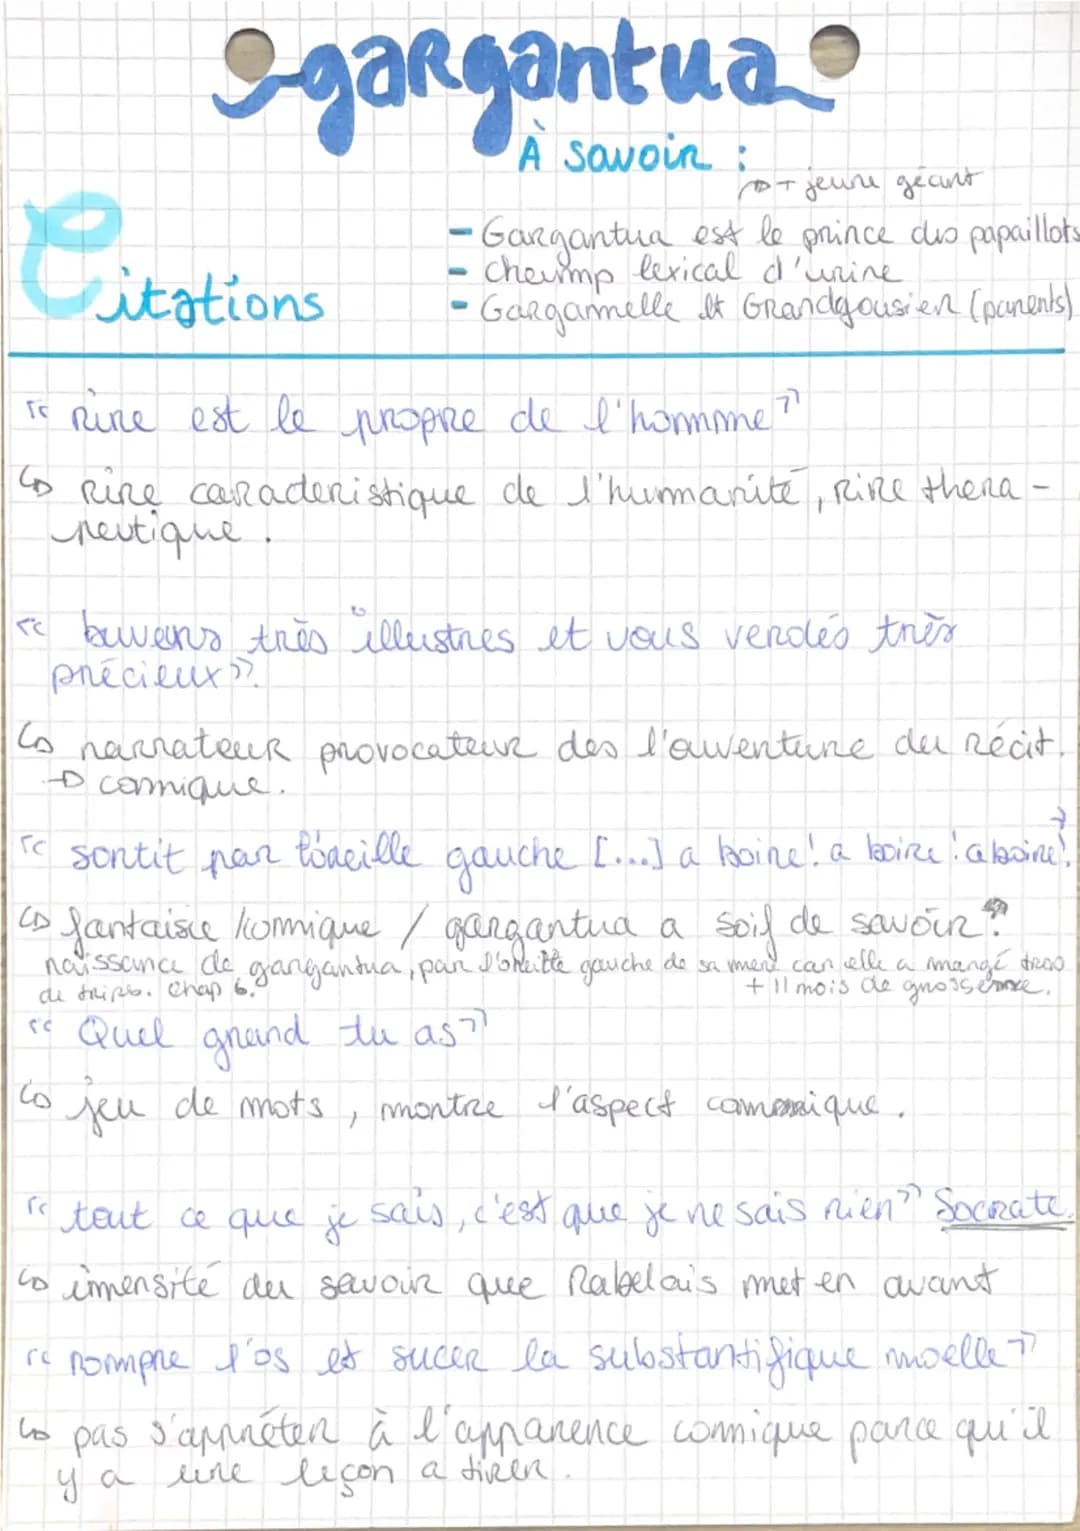 gargantua
À savoir :
→ + jeune géant
- Gargantua est le prince des papaillots
- Champ lexical d'urine
- Gargamelle et Grandgousier (parents)
Citations
"rire est le propre de l'homme"
↳ Rire caracteristique de l'humanité, rire thera-
peutique.
"buveurs très illustres et vous verolés très
précieux".
↳ narrateur provocateur des l'ouverture du récit.
→ comique.
"sortit par l'oreille gauche [...] a boire! a boire! a boire!"
↳ fantaisie / comique / gargantua a soif de savoir?
naissance de gargantua, par l'oreille gauche de sa mere car elle a mangé trop
de tripes. Chap 6.
+ 11 mois de grossesse.
"Quel grand tu as"
↳ jeu de mots, montre l'aspect comique.
"tout ce que je sais, c'est que je ne sais rien" Socrate.
↳ immensité du savoir que Rabelais met en avant
"rompre l'os et sucer la substantifique moelle"
↳ pas s'apprêter à l'apparence comique parce qu'il
y a une leçon a tirer.